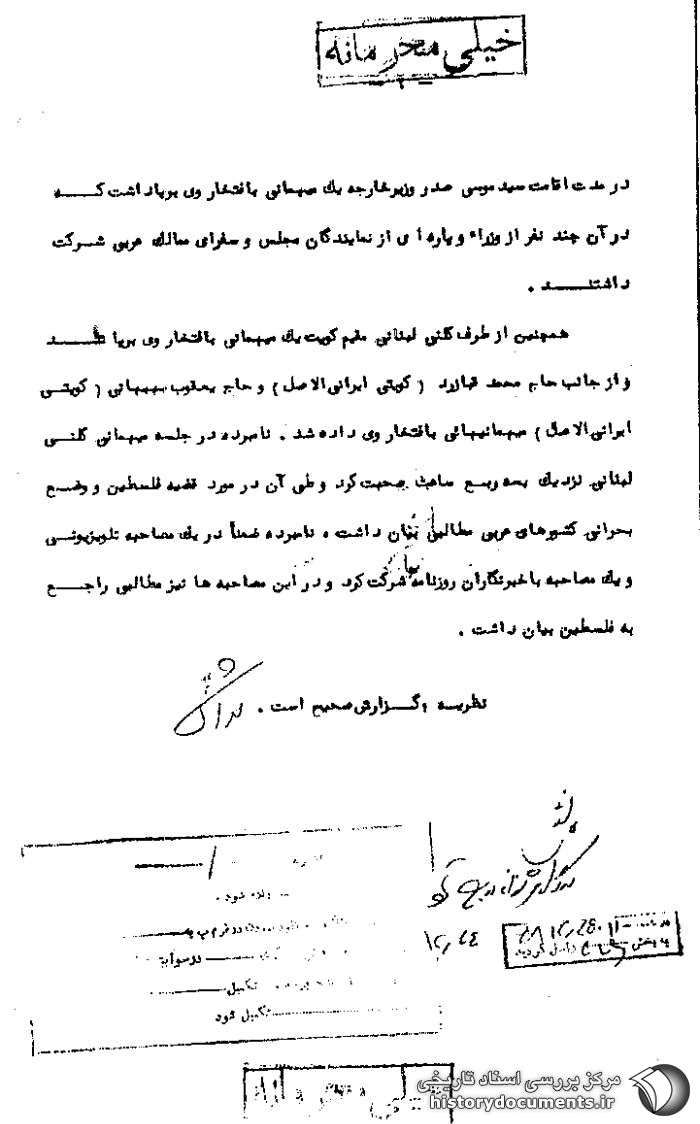 خیلی محرمانه
در مدت اقامت سید موسی صدر وزیر خارجه یك میهمانی بافتخار وی برپا داشت که
در آن چند نفر از وزراء و پاره ای از نمایندگان مجلس و سفرای ممالك عربی شرکت
داشتند .
همچنین از طرف کلنی لبنانی مقیم کویت یك میهمانی بافتخار وی برپا شد
و از جانب حاج محمد قبازرد ( کویتی ایرانی الاصل ) و حاج یعقوب بهبهانی ( کویتی
ایرانی الاصل ) میهمانیهائی بافتخار وی داده شد . نامبرده در جلسه میهمانی کلنی
لبنانی نزدیك بسه ربع ساعت صحبت کرد و طی آن در مورد قضیه فلسطین و وضع
بحرانی کشورهای عربی مطالبی بیان داشت . نامبرده ضمناً در یك مصاحبه تلویزیونی
و یك مصاحبه با خبرنگاران روزنامه‌ها شرکت کرد و در این مصاحبه ها نیز مطالبی راجع
به فلسطین بیان داشت .
نظریه : گزارش صحیح است .
۱۲٫۲۴
داده شود .
در سوابق
تکمیل
تکمیل شود
خیلی محرمانه
مرکز بررسی اسناد تاریخی
historydocuments.ir